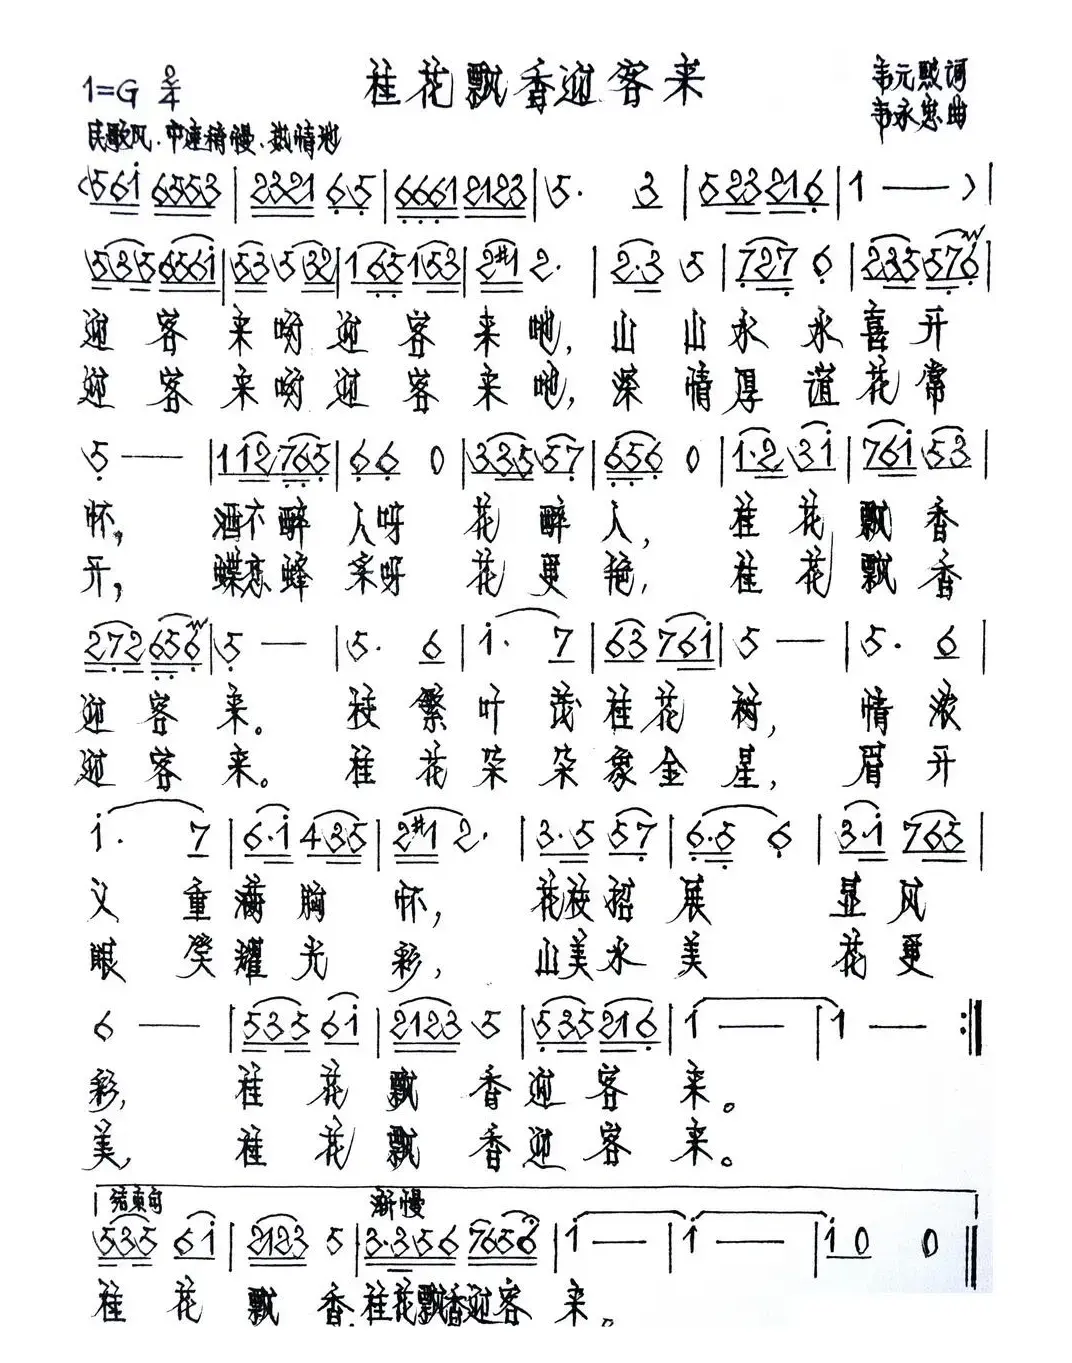 桂花飘香迎客来
1=G 2/4
韦元默词
韦永忠曲
民歌风.中速稍慢、热情地
(561 6553 | 2321 65 | 6661 2123 | 5. 3 | 523 216 | 1 — ) |
535 6561 | 53 532 | 165 153 | 2#1 2. | 2·3 5 | 727 6 | 235 576 |
迎客来呀迎客来吔,山山水水喜开
迎客来呀迎客来吔,深情厚谊花常
5 — | 112 765 | 66 0 | 335 57 | 656 0 | 1·2 31 | 761 53 |
怀,酒不醉人呀花醉人,桂花飘香
开,蝶恋蜂采呀花更艳,桂花飘香
272 656 | 5 — | 5. 6 | 1. 7 | 63 761 | 5 — | 5. 6 |
迎客来。枝繁叶茂桂花树,情浓
迎客来。桂花朵朵象金星,眉开
1. 7 | 6·1 435 | 2#1 2. | 3·5 57 | 6·5 6 | 3·1 765 |
义重满胸怀,花枝招展显风
眼笑耀光彩,山美水美花更
6 — | 535 61 | 2123 5 | 535 216 | 1 — | 1 — :||
彩,桂花飘香迎客来。
美,桂花飘香迎客来。
结束句 渐慢
535 61 | 2123 5 | 3·356 7656 | 1 — | 1 — | 10 0 ||
桂花飘香桂花飘香迎客来。